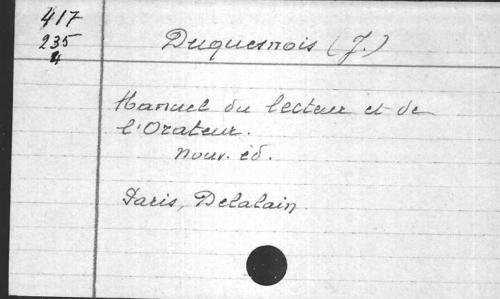 417
235
4
Duquesnois (J.)
Manuel du lecteur et de
l'Orateur.
nouv. éd.
Paris, Delalain